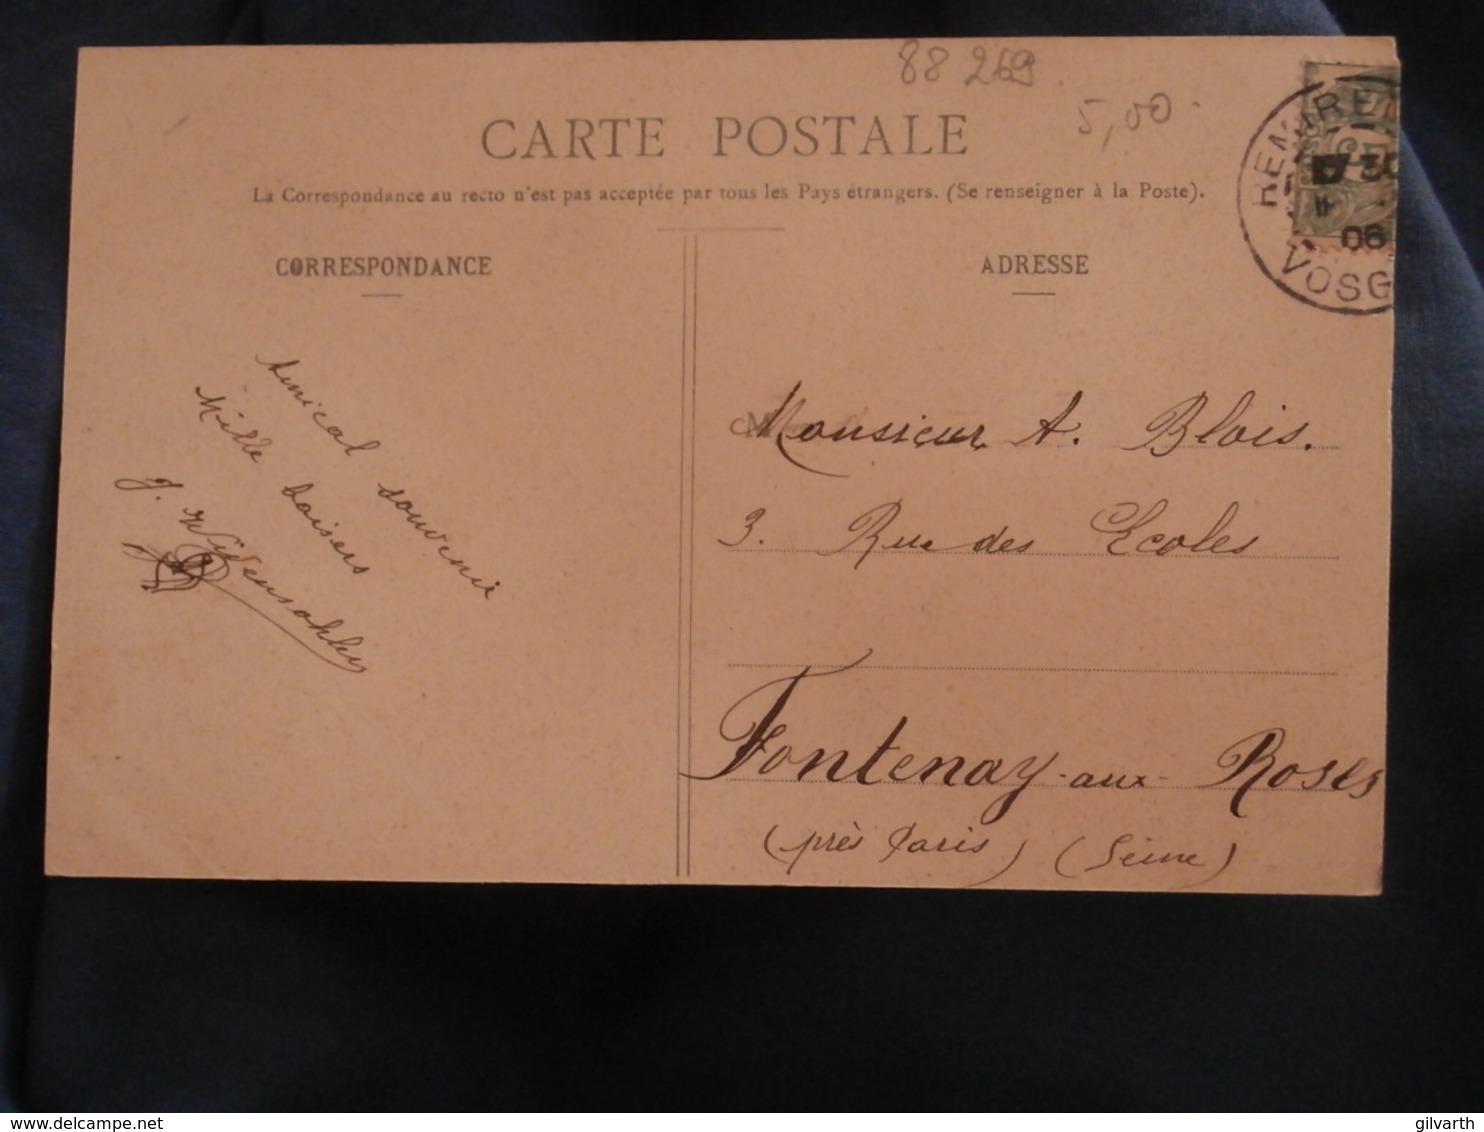 88 269
5,00
CARTE POSTALE
La Correspondance au recto n'est pas acceptée par tous les Pays étrangers. (Se renseigner à la Poste).
CORRESPONDANCE
Amical souvenir
Mille baisers
J.
ADRESSE
Monsieur A. Blois.
3. Rue des Ecoles
Fontenay-aux-Roses
(près Paris) (Seine)
REMIREM
30
06
VOSG
delcampe.net
gilvarth